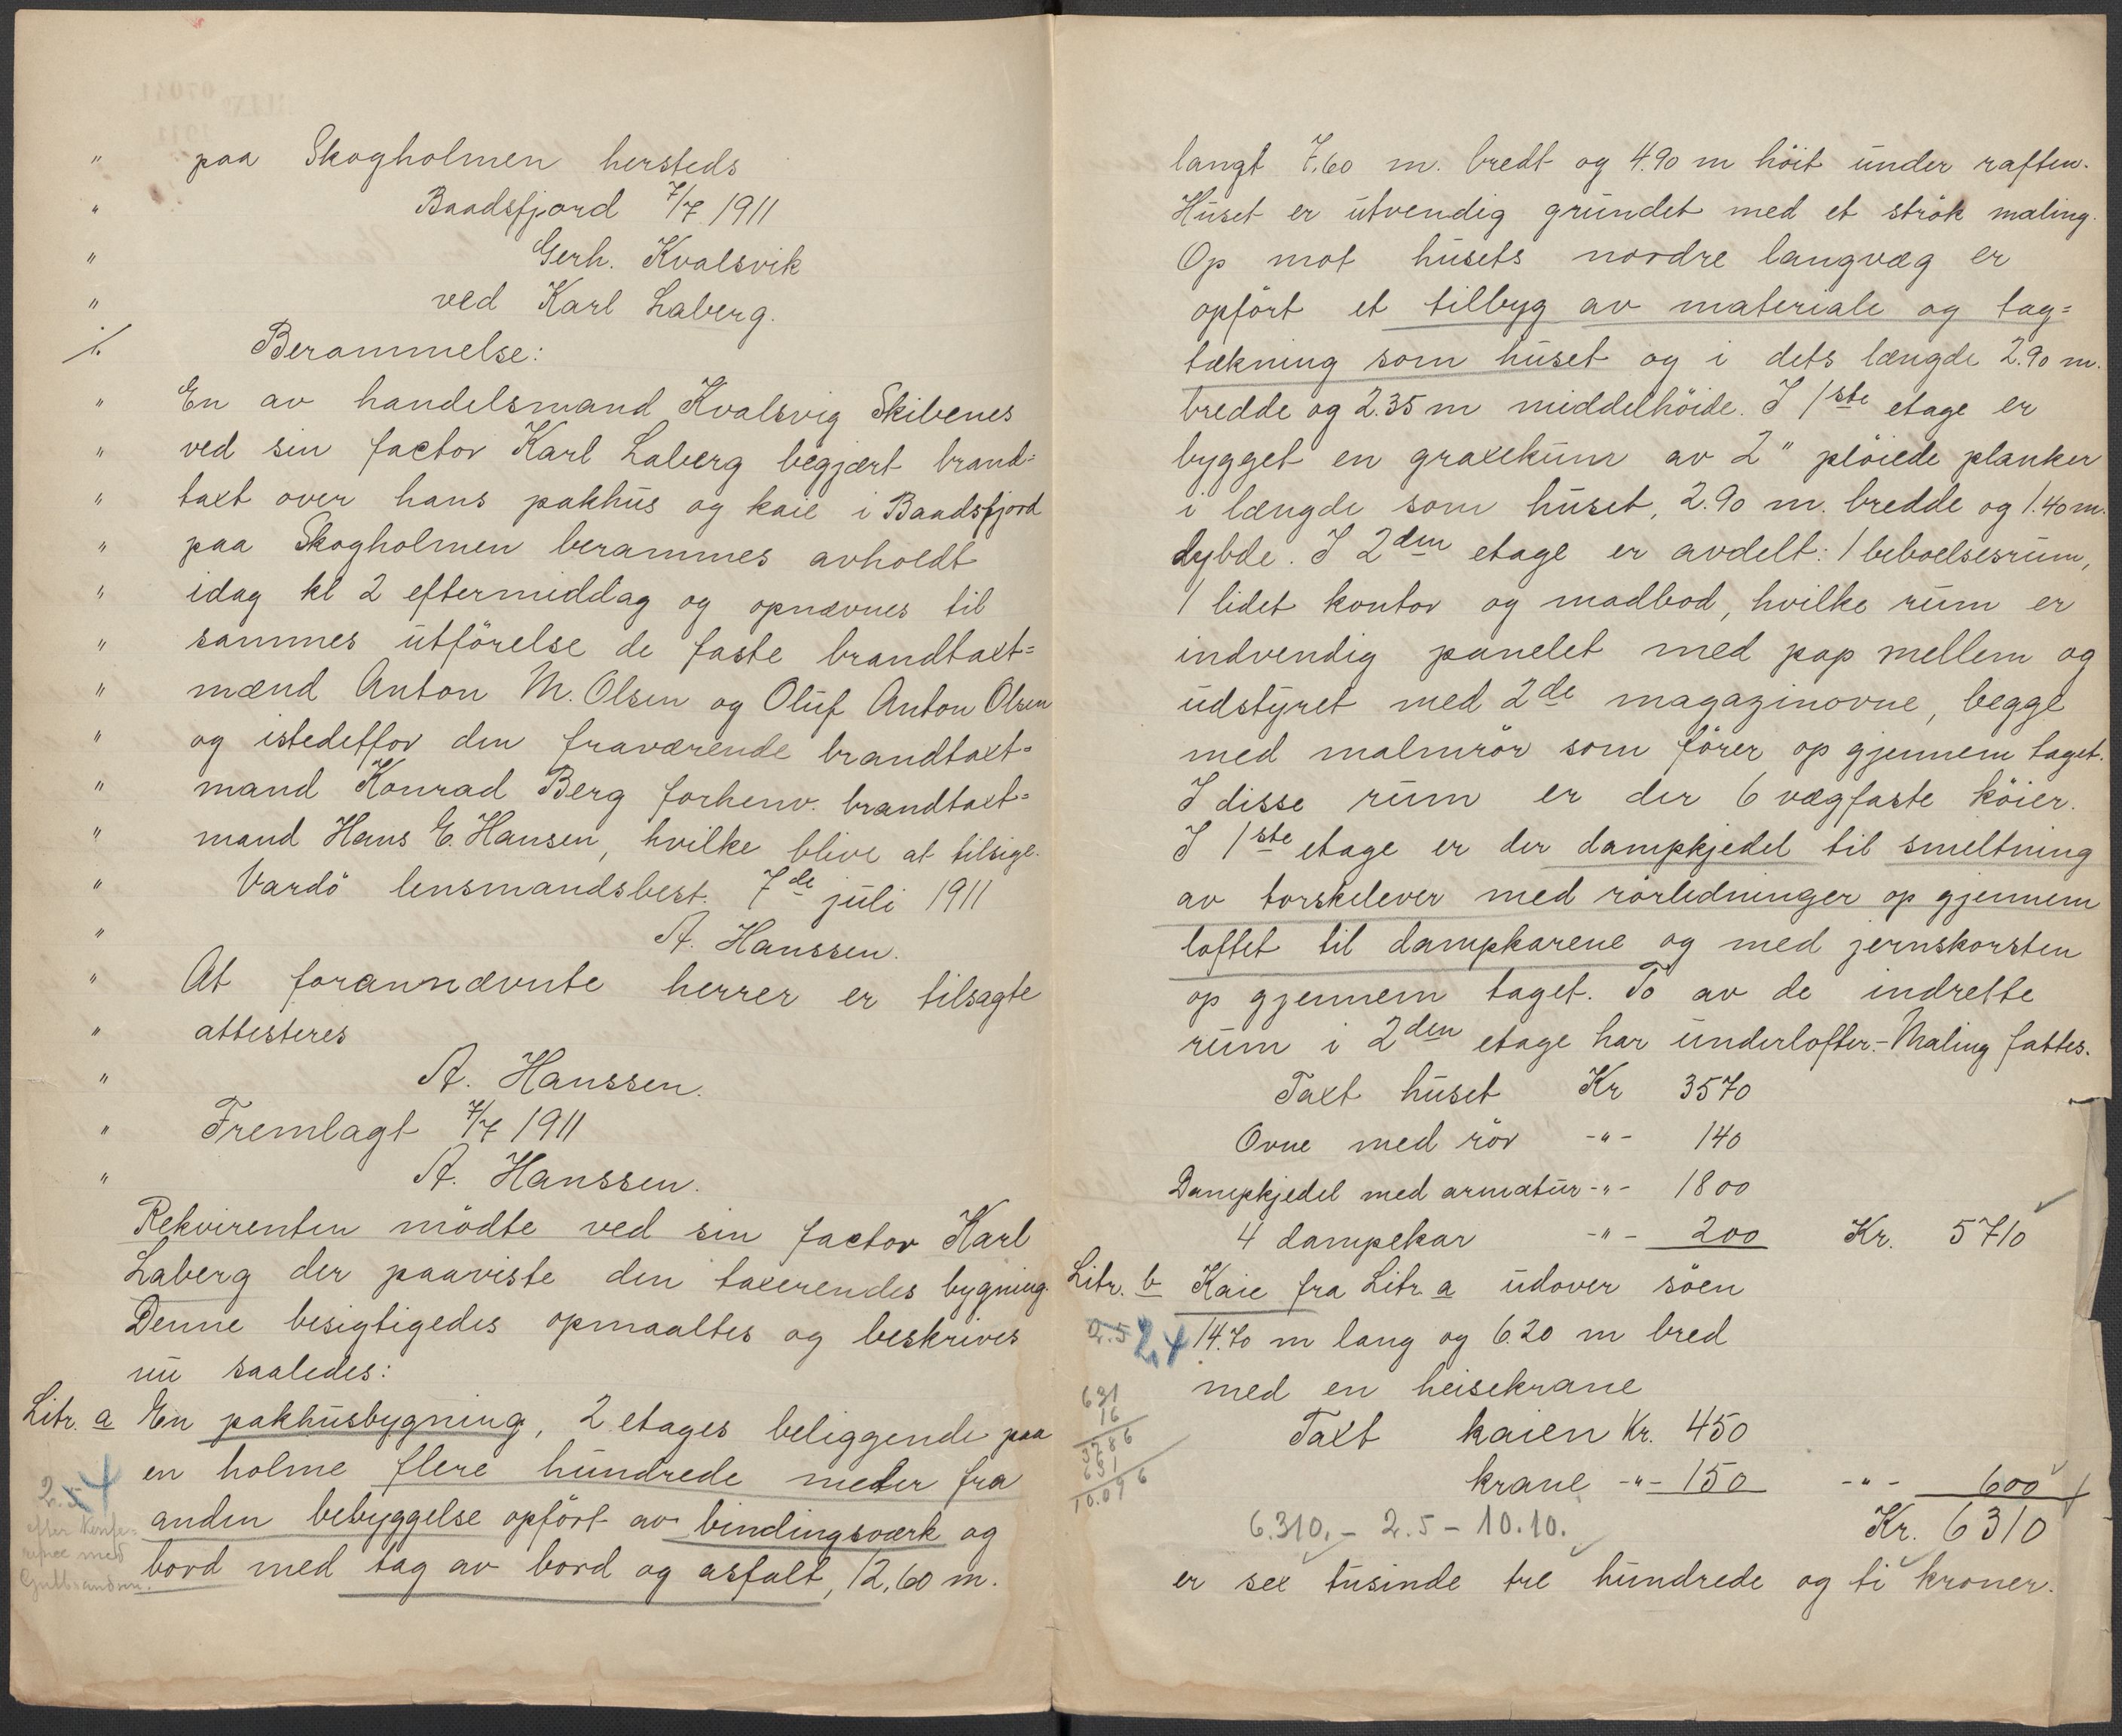 " paa Skogholmen hersteds
" Baadsfjord 7/7 1911
" Gerh. Kvalsvik
" ved Karl Laberg.
·/. Berammelse:
" En av handelsmand Kvalsvig Skibenes
" ved sin factor Karl Laberg begjært brand=
" taxt over hans pakhus og kaie i Baadsfjord
" paa Skogholmen berammes avholdt
" idag kl 2 eftermiddag og opnævnes til
" sammes utförelse de faste brandtaxt=
" mænd Anton M. Olsen og Oluf Anton Olsen
" og istedetfor den fraværende brandtaxt=
" mand Konrad Berg forhenv. brandtaxt=
" mand Hans E. Hansen, hvilke blive at tilsige.
" Vardö lensmandsbest. 7de juli 1911
" A. Hanssen.
" At forannævnte herrer er tilsagte
" attesteres
" A. Hanssen.
" Fremlagt 7/7 1911
" A. Hanssen.
Rekvirenten mödte ved sin factor Karl
Laberg der paaviste den taxerendes bygning.
Denne besigtigedes opmaaltes og beskrives
nu saaledes:
Litr. a En pakhusbygning, 2 etages beliggende paa
en holme flere hundrede meter fra
2.5 4
anden bebyggelse opfört av bindingsværk og
efter Konfe=
rence med
bord med tag av bord og asfalt, 12,60 m.
langt 7,60 m. bredt og 4.90 m höit under raften.
Huset er utvendig grundet med et strök maling.
Op mot husets nordre langvæg er
opfört et tilbyg av materiale og tag=
tækning som huset og i dets længde 2.90 m.
bredde og 2.35 m middelhöide. I 1ste etage er
bygget en graxekum av 2" plöiede planker
i længde som huset, 2.90 m. bredde og 1.40 m.
dybde. I 2den etage er avdelt: 1 beboelsesrum,
1 lidet kontor og madbod, hvilke rum er
indvendig panelet med pap mellem og
udstyret med 2de magazinovne, begge
med malmrör som förer op gjennem taget.
I disse rum er der 6 vægfaste köier.
I 1ste etage er der dampkjedel til smeltning
av torskelever med rörledninger op gjennem
loftet til dampkarene og med jernskorsten
op gjennem taget. To av de indrette
rum i 2den etage har underlofter.- Maling fattes.
Taxt huset Kr 3570
Ovne med rör -"- 140
Dampkjedel med armatur -"- 1800
4 dampekar -"- 200 Kr. 5710
Litr. b Kaie fra Litr. a udover söen
2.5 2,4 14.70 m lang og 6.20 m bred
med en heisekrane
631
16
3786
631
10.096
Taxt kaien Kr. 450
krane -"- 150 -"- 600
6.310.- 2.5 - 10.10. Kr. 6310
er sex tusinde tre hundrede og ti kroner.